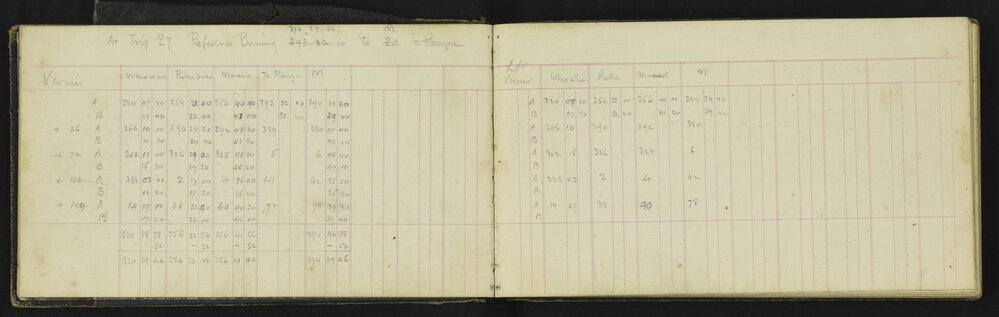 294. 39.46 M
At Trig 27 Reference Bearing 293-32-10 to Te Ranga
Vernier Whio Whio Puke puke Moana Te Ranga M
A 230 07 20 254 22 00 256 40 40 293 32 00 294 39 20
B 07 40 22 00 41 00 32 40
+ 36 A 266 10 00 290 24 20 292 43 20 329 330 40
B 10 20 24 40 43 40 42 00
+ 72 A 302 15 00 326 29 00 328 48 20 5 6
B 15 20 29 20 48 20
+ 108 A 338 03 00 2 17 00 4 36 20 41 42 35 20
B 03 20 17 20 36 40 35 40
+ 144 A 14 07 00 38 21 40 40 40 20 77 78 39 20
B 07 20 22 00 41 00 39 40
230 08 38 254 22 54 256 41 56 290 40 38
- 52 - 52 - 52 - 52
230 07 46 254 22 02 256 41 04 294 39 46
Vernier Puke Moana M
A 230 07 20 254 22 00 256 41 00 294 39 20
B 07 40 22 20 41 20 39 40
A 266 10 290 292 330
B
A 302 15 326 328 6
B
A 338 03 2 4 42
B
A 14 07 38 40 78
B